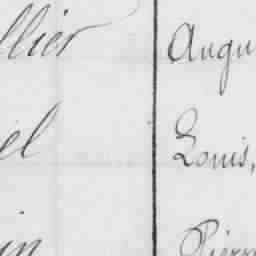 llier Augu
el Louis,
in Pierr